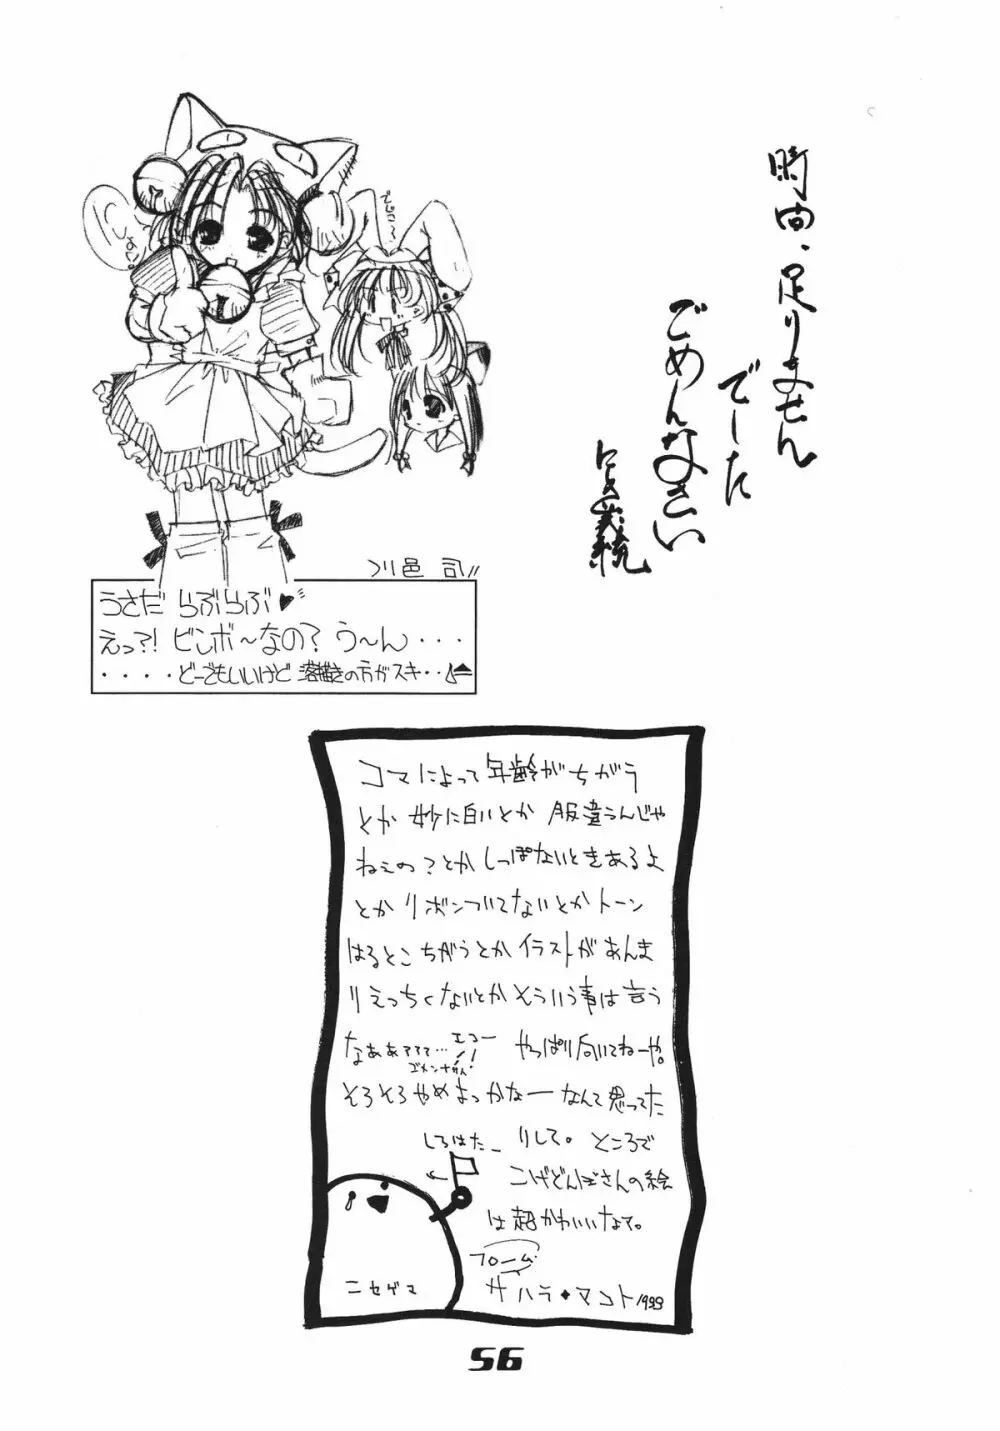 時間、足りません
でーした
ごめんなさい
しょむ。
でじこ〜
川邑 司
うさだ らぶらぶ♥
えっ?! ビンボ〜なの? う〜ん・・・・
・・・・どーでもいいけど 落描きの方がスキ・・
コマによって年齢がちがう
とか 妙に白いとか 服違うんじゃ
ねぇの?とか しっぽないときあるよ
とか リボンついてないとか トーン
はるとこ ちがうとか イラストがあんま
りえっちくないとか そういう事は言う
なああァァァ… エコー やっぱり向いてねーや。
ゴメンナサイ!
そろそろやめよっかなー なんて思ってた
りして。 ところで
しろはたー
こげどんぼさんの絵
は超かわいいなぁ。
フローム
サハラ◆マコト 1999
ニセゲマ
56